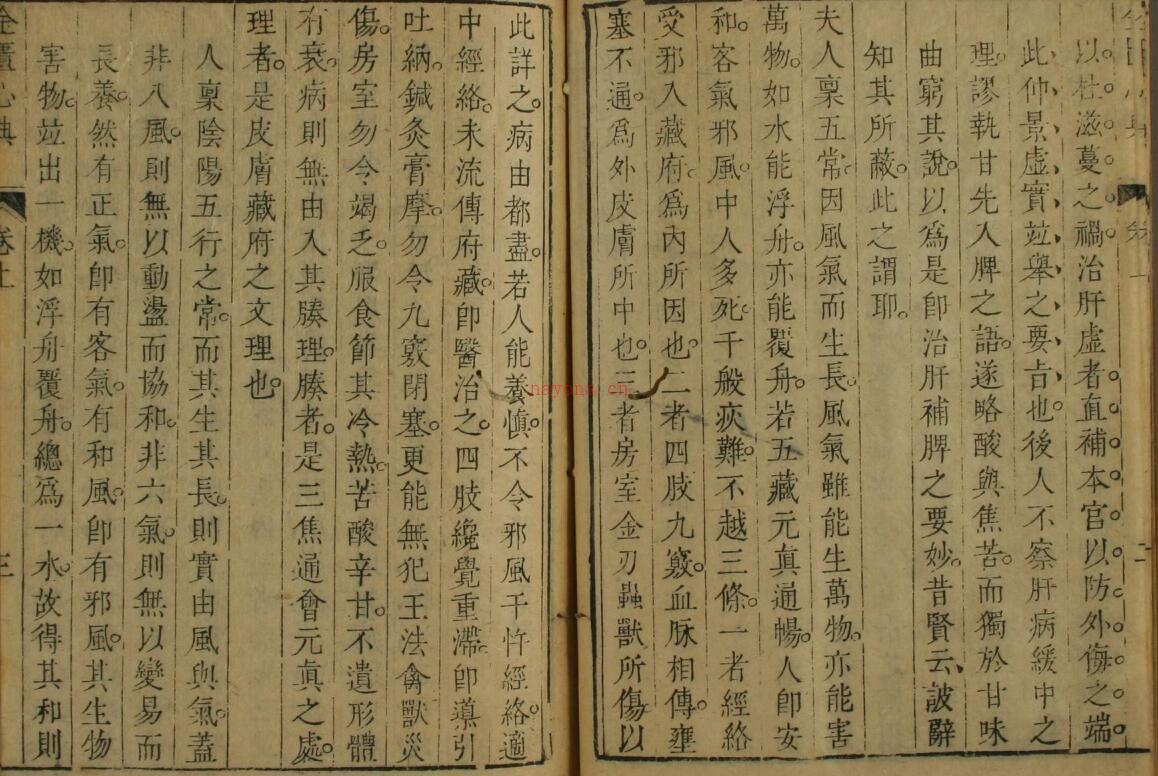 以杜滋蔓之禍治肝虛者直補本宮以防外侮之端。
此仲景虛實竝舉之要旨也後人不察肝病緩中之
理。謬執甘先入脾之語。遂略酸與焦苦。而獨於甘味
曲窮其說。以爲是卽治肝補脾之要妙。昔賢云、詖辭
知其所蔽。此之謂耶。
夫人稟五常。因風氣而生長。風氣雖能生萬物。亦能害
萬物。如水能浮舟。亦能覆舟。若五藏元眞通暢。人卽安
和。客氣邪風。中人多死。千般疢難。不越三條。一者經絡
受邪入藏府。爲內所因也。二者四肢九竅。血脈相傳。壅
塞不通。爲外皮膚所中也。三者房室金刃蟲獸所傷以
此詳之。病由都盡。若人能養愼。不令邪風干忤經絡。適
中經絡。未流傳府藏。卽醫治之。四肢纔覺重滯。卽導引
吐納。鍼灸膏摩。勿令九竅閉塞。更能無犯王法禽獸災
傷。房室勿令竭乏。服食節其冷熱。苦酸辛甘。不遺形體
有衰。病則無由入其腠理。腠者。是三焦通會元眞之處。
理者。是皮膚藏府之文理也。
人稟陰陽五行之常。而其生其長。則實由風與氣。蓋
非八風則無以動盪而協和。非六氣。則無以變易而
長養。然有正氣。卽有客氣。有和風。卽有邪風。其生物
害物。竝出一機。如浮舟覆舟。總爲一水。故得其和則
金匱心典
卷上
三
二
nayona.cn